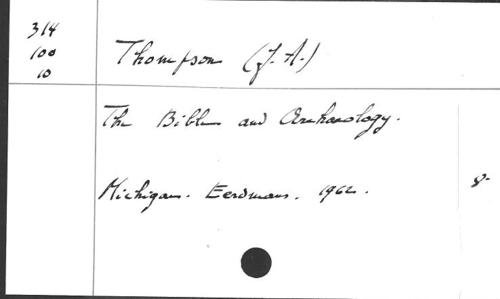 314
100
10
Thompson (J. A.)
The Bible and Archaeology.
Michigan. Eerdmans. 1962.
8-